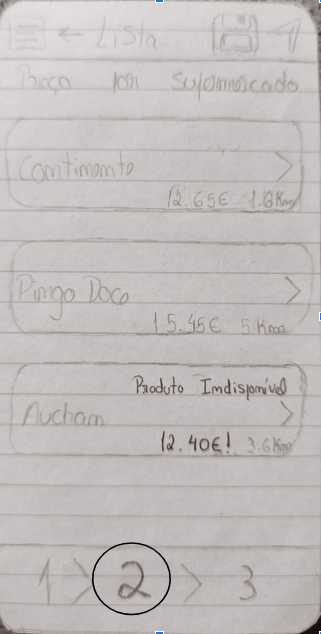 ← Lista
Preço por supermercado
Continente
12.65€ 1.8Km
Pingo Doce
15.45€ 5 Km
Produto Indisponível
Auchan
12.40€! 3.6Km
1 > 2 > 3